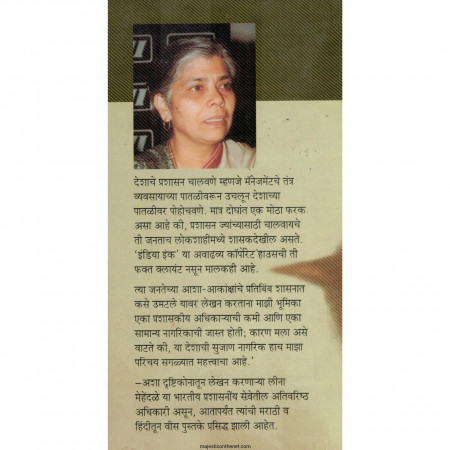 देशाचे प्रशासन चालवणे म्हणजे मॅनेजमेंटचे तंत्र
व्यवसायाच्या पातळीवरून उचलून देशाच्या
पातळीवर पोहोचवणे. मात्र दोघांत एक मोठा फरक
असा आहे की, प्रशासन ज्यांच्यासाठी चालवायचे
ती जनताच लोकशाहीमध्ये शासकदेखील असते.
'इंडिया इंक' या अवाढव्य कॉर्पोरेट हाउसची ती
फक्त क्लायंट नसून मालकही आहे.
त्या जनतेच्या आशा-आकांक्षांचे प्रतिबिंब शासनात
कसे उमटले यावर लेखन करताना माझी भूमिका
एका प्रशासकीय अधिकाऱ्याची कमी आणि एका
सामान्य नागरिकाची जास्त होती; कारण मला असे
वाटते की, या देशाची सुजाण नागरिक हाच माझा
परिचय सगळ्यात महत्त्वाचा आहे.'
–अशा दृष्टिकोनातून लेखन करणाऱ्या लीना
मेहेंदळे या भारतीय प्रशासनीय सेवेतील अतिवरिष्ठ
अधिकारी असून, आतापर्यंत त्यांची मराठी व
हिंदीतून वीस पुस्तके प्रसिद्ध झाली आहेत.
majesticonthenet.com